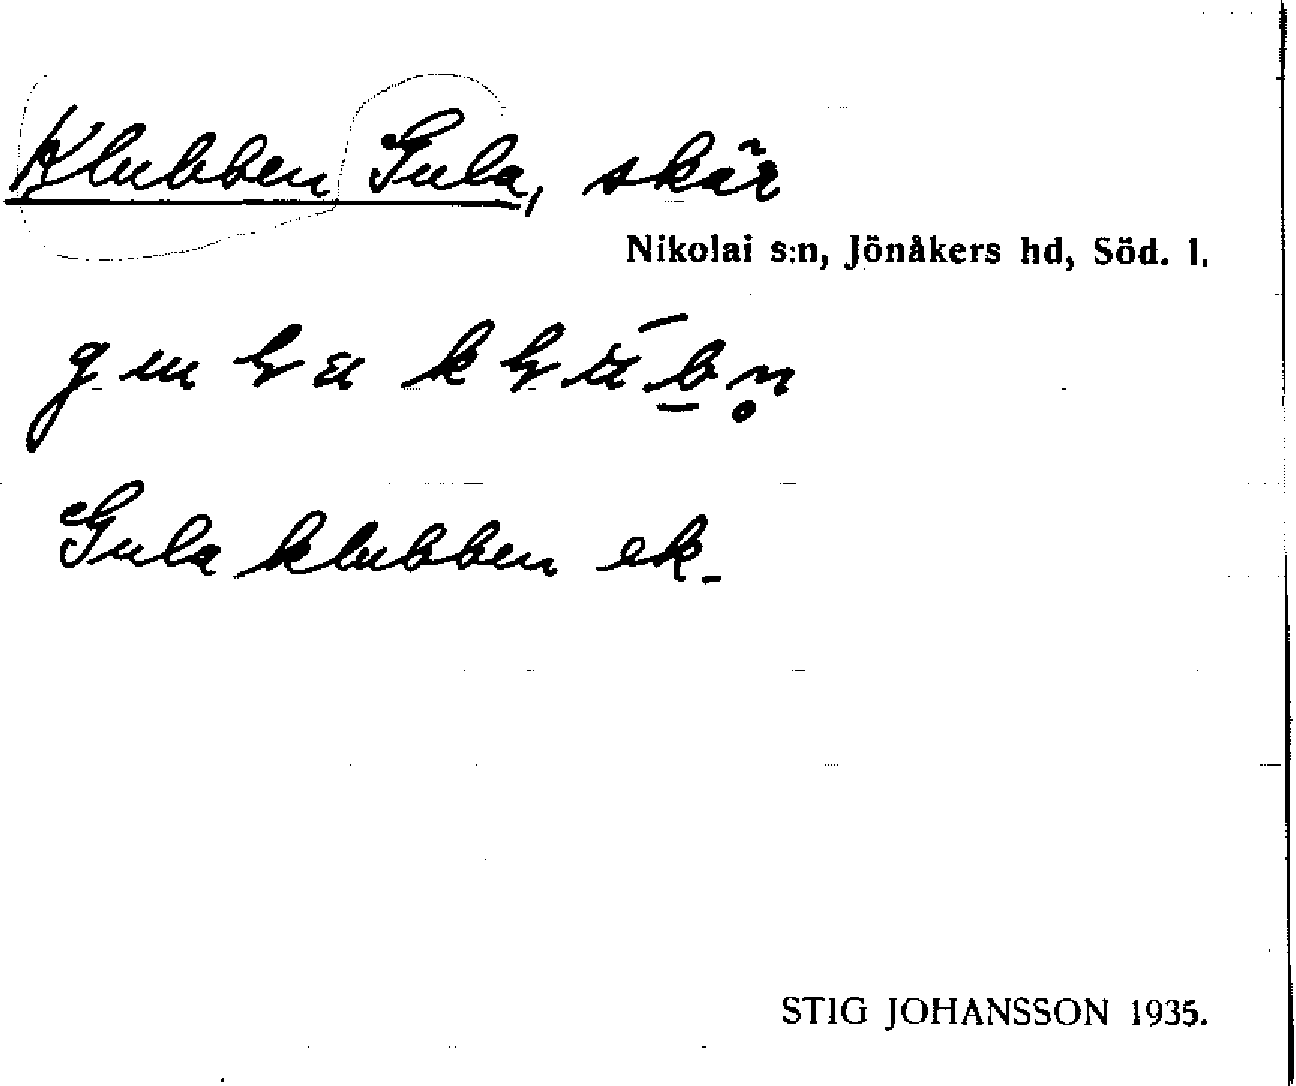 Klubben Gula, skär
Nikolai s:n, Jönåkers hd, Söd. l.
Gula klubben ek.
STIG JOHANSSON 1935.